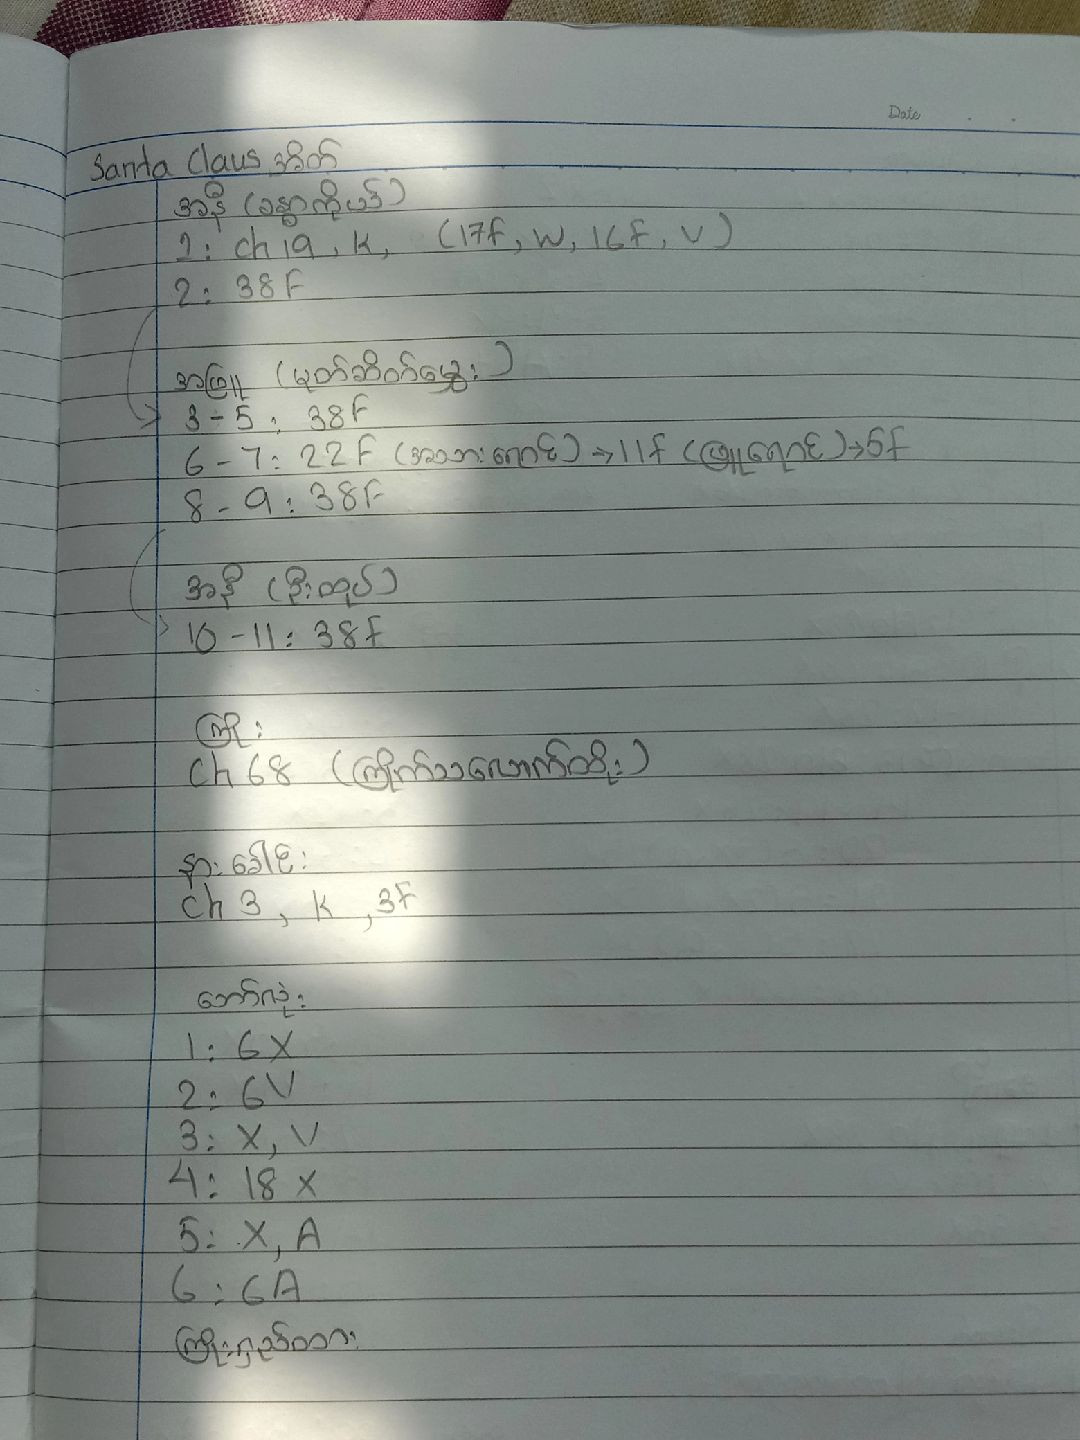 Date
Santa Claus အိတ်
အနီ (ခန္ဓာကိုယ်)
1: ch 19, K, (17F, W, 16F, V)
2: 38F
အဖြူ (မုတ်ဆိတ်မွှေး)
3-5: 38F
6-7: 22F (အသားရောင်) → 11F (ဖြူရောင်) → 5F
8-9: 38F
အနီ (ဦးထုပ်)
10-11: 38F
ကြိုး
Ch 68 (ကြိုက်သလောက်ထိုး)
နှားခေါင်း
Ch 3, K, 3F
ဘော်လုံး
1: 6X
2: 6V
3: X, V
4: 18X
5: X, A
6: 6A
ကြိုးရှည်ထား